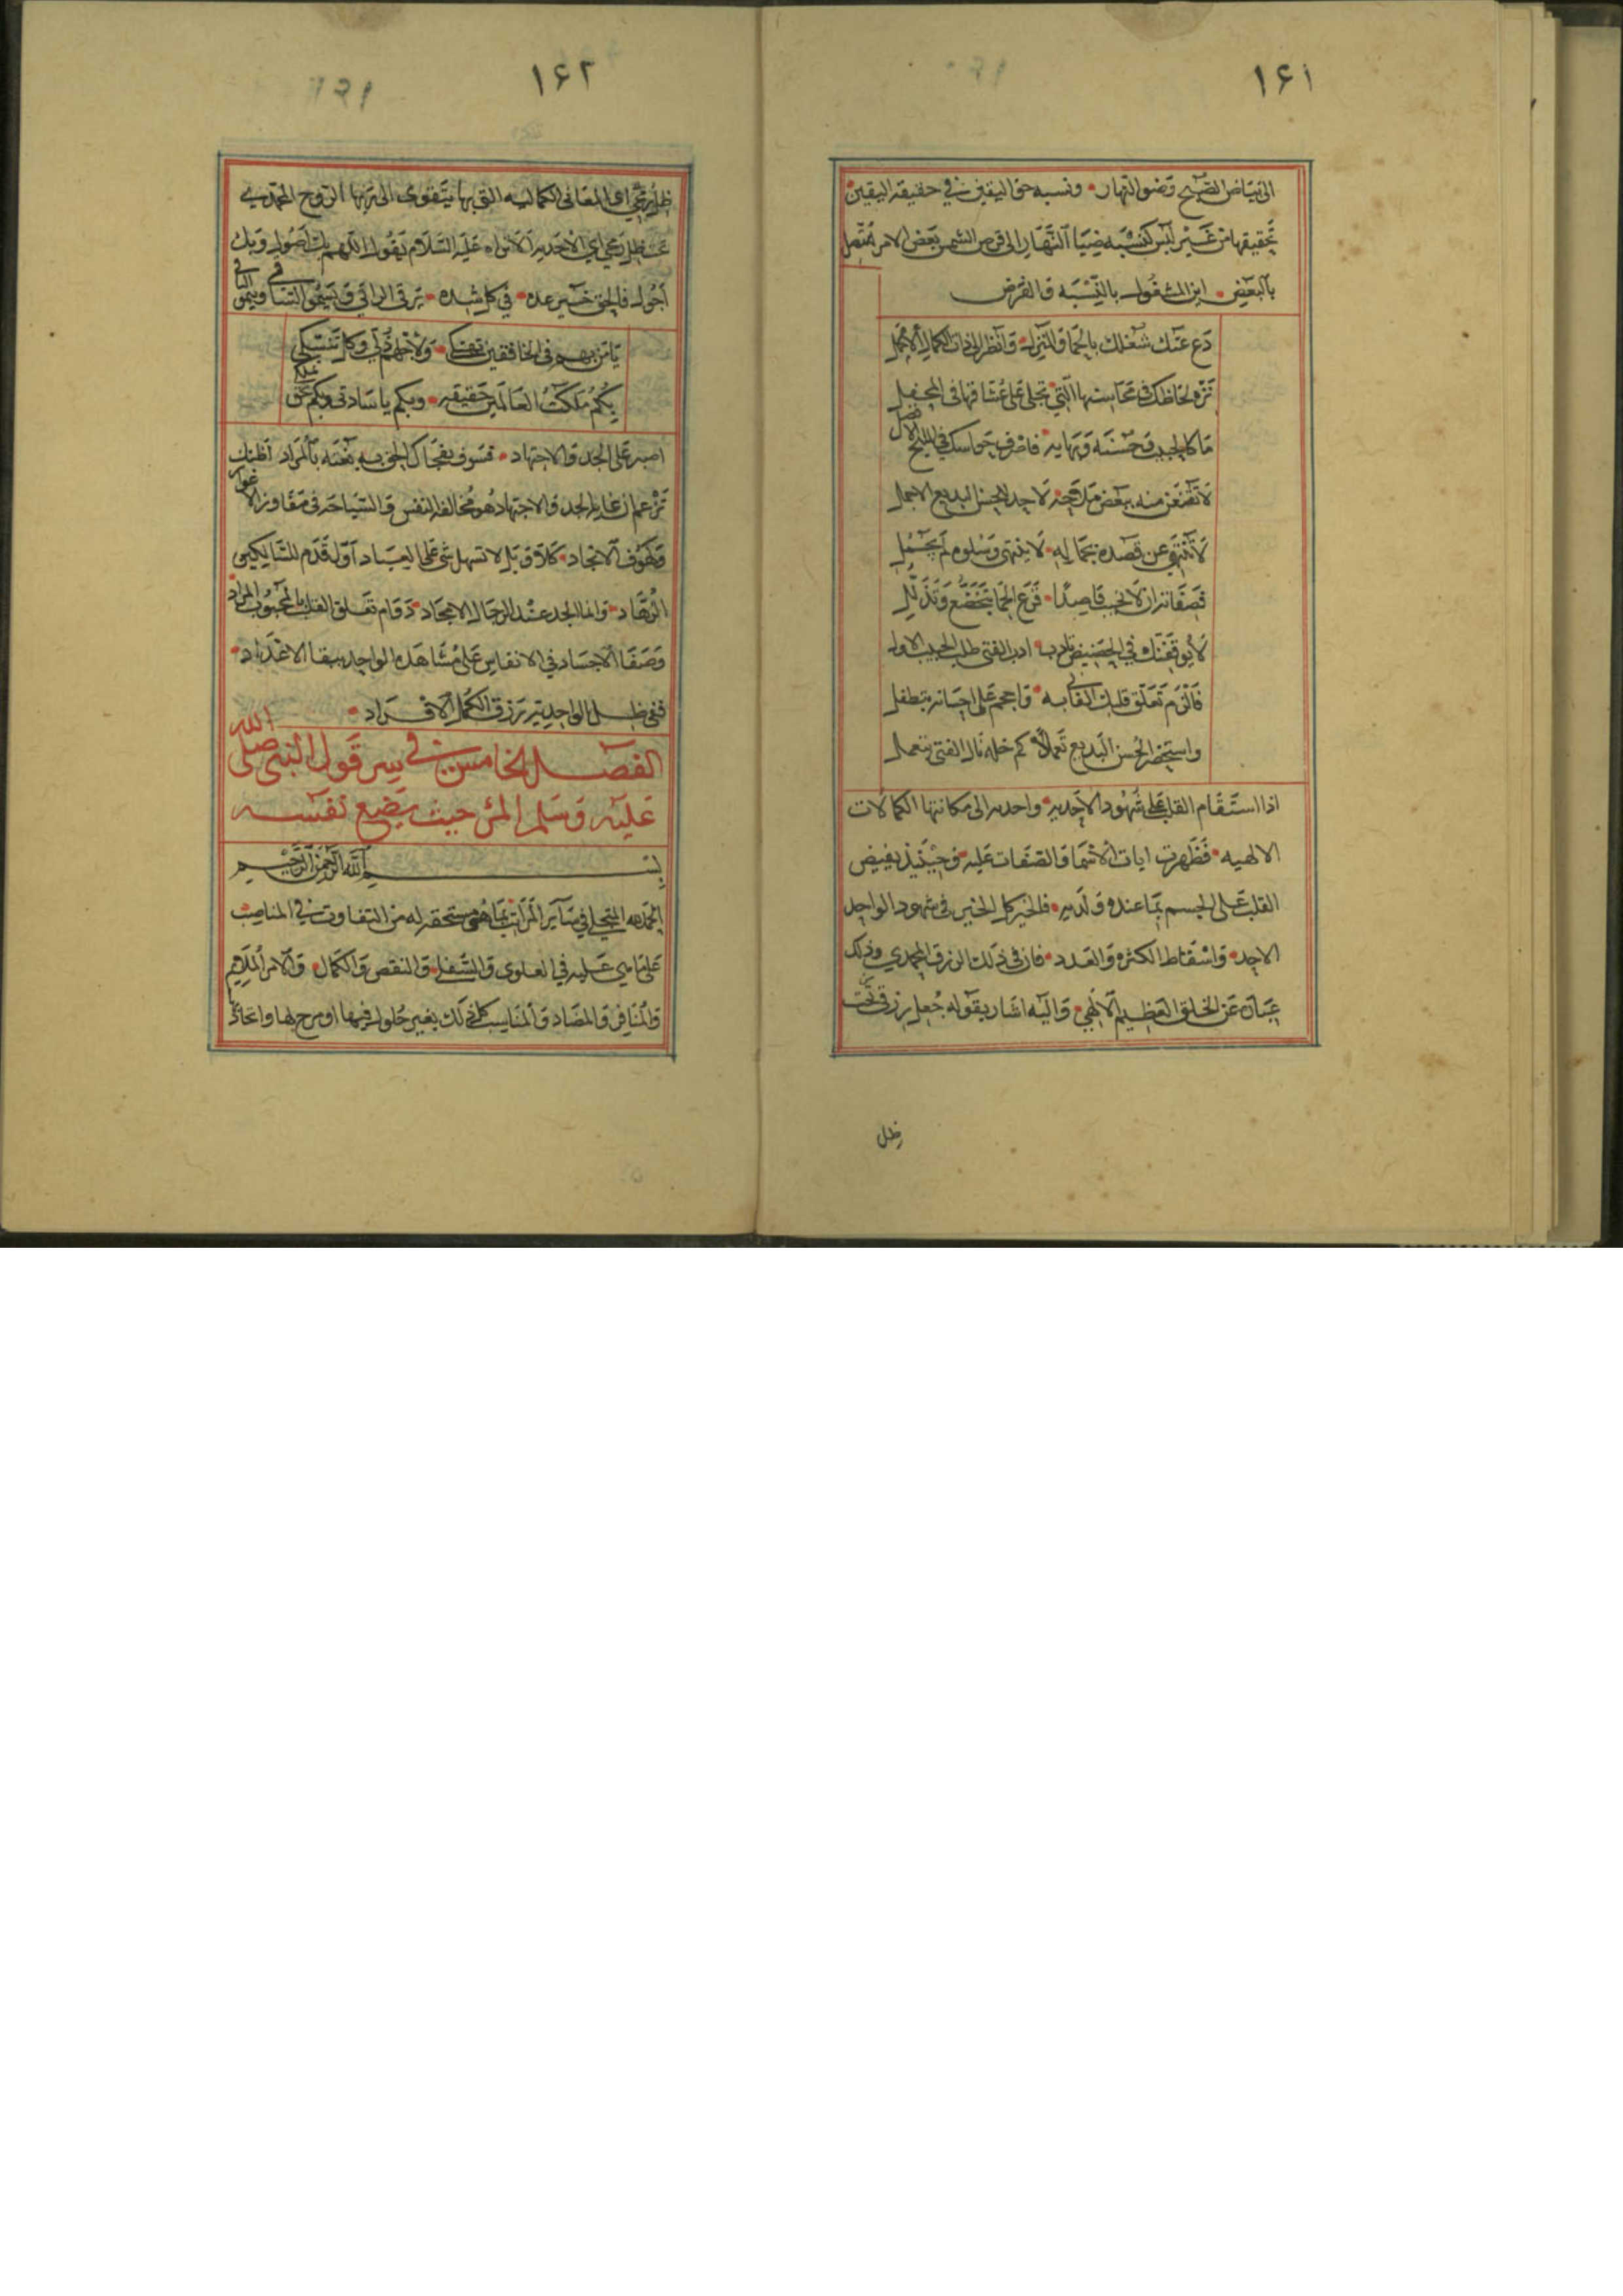 ١٦١
الى بياض الصبح وضو النهار • ونسبه حق اليقين في حقيقة اليقين •
تحقيقها من غير لبس كنسبه ضياء النهار الى قرص الشمس بعض الامر متصل
بالبعض • اين المشغول بالنسبه والفرض
دع عنك شغلك بالحما والمنزل • وانظر الى ذات الكمال الاجمل
نزه لحاظك في محاسنها التي • تجلى على عشاقها في المحفل
ما كالحبيب وحسنه وبهايه • فاصرف حواسك في المليح الافضل
لا تقنعن منه ببعض ملاحة • لاحد للحسن البديع الاجمل
لا تنتهي عن قصده بجماله • لا ينتهي وسلوه لم يجمل
قاصدا • قرع الحما بتخضع وتذلل
لا يوقفنك في الحضيض تادب • ادب الفتى طلب الحبيب الاول
فالزم تعلق قلبك الفاني به • واهجم على احسانه بتطفل
واستحضر الحسن البديع تعملا • كم خلة نال الفتى بتعمل
اذا استقام القلب على شهود الاحديه • واحدته الى مكانتها الكمالات
الالهيه • فظهرت ايات الاسما والصفات عليه • وحينئذ يفيض
القلب على الجسم بما عنده ولديه • فالخير كل الخير في شهود الواحد
الاحد • واسقاط الكثره والعدد • فان في ذلك الرزق المحمدي وذلك
عبارة عن الخلق العظيم الالهي • واليه اشار بقوله جعل رزقي تحت
ظل
١٦٢
ظل رمحي اي المعاني الكماليه التي بها يتقوى الروح المحمدي
ظل رمحي اي الاحديه الا تراه عليه السلام يقول اللهم بك اصول وبك
اجول فالحق عده • في كل شده • يرقى الراقي ويسمو السافي وينمو النافي
يا من بهم في الخافقين تهتكي • ولاجلهم ذلي وكل تنسكي
بكم ملكت العالمين حقيقه • وبكم يا سادتي وبكم
اصبر على الجد والاجتهاد • فسوف يفجاك الحق به بغتة بالمراد اظنك
تزعم ان غاية الجد والاجتهاد هو مخالفة النفس والسياحة في مفاوز الاغوار
وكهوف الانجاد • كلا وبل لا تسهل شي على العباد اول قدم للسالكين
الزهاد • وانما الجد عند الرجال الامجاد • دوام تعلق القلب بالمحبوب المراد
وصفا الاجساد في الانفاس على مشاهده الواحد
ففي ظل الواحديه رزق الكمل الافراد •
الفصل الخامس في سر قول النبي صلى الله
عليه وسلم المرء حيث يضع نفسه
بسم الله الرحمن الرحيم
الحمد لله المتجلي في ساير المراتب بما هي مستحقة له من التفاوت في المناصب
على ما هي عليه في العلوي والسفلي • والنقص والكمال • والامر الملايم
والمنافر والمضاد والمناسب كل ذلك بغير حلول فيها او مزج لها واتحاد